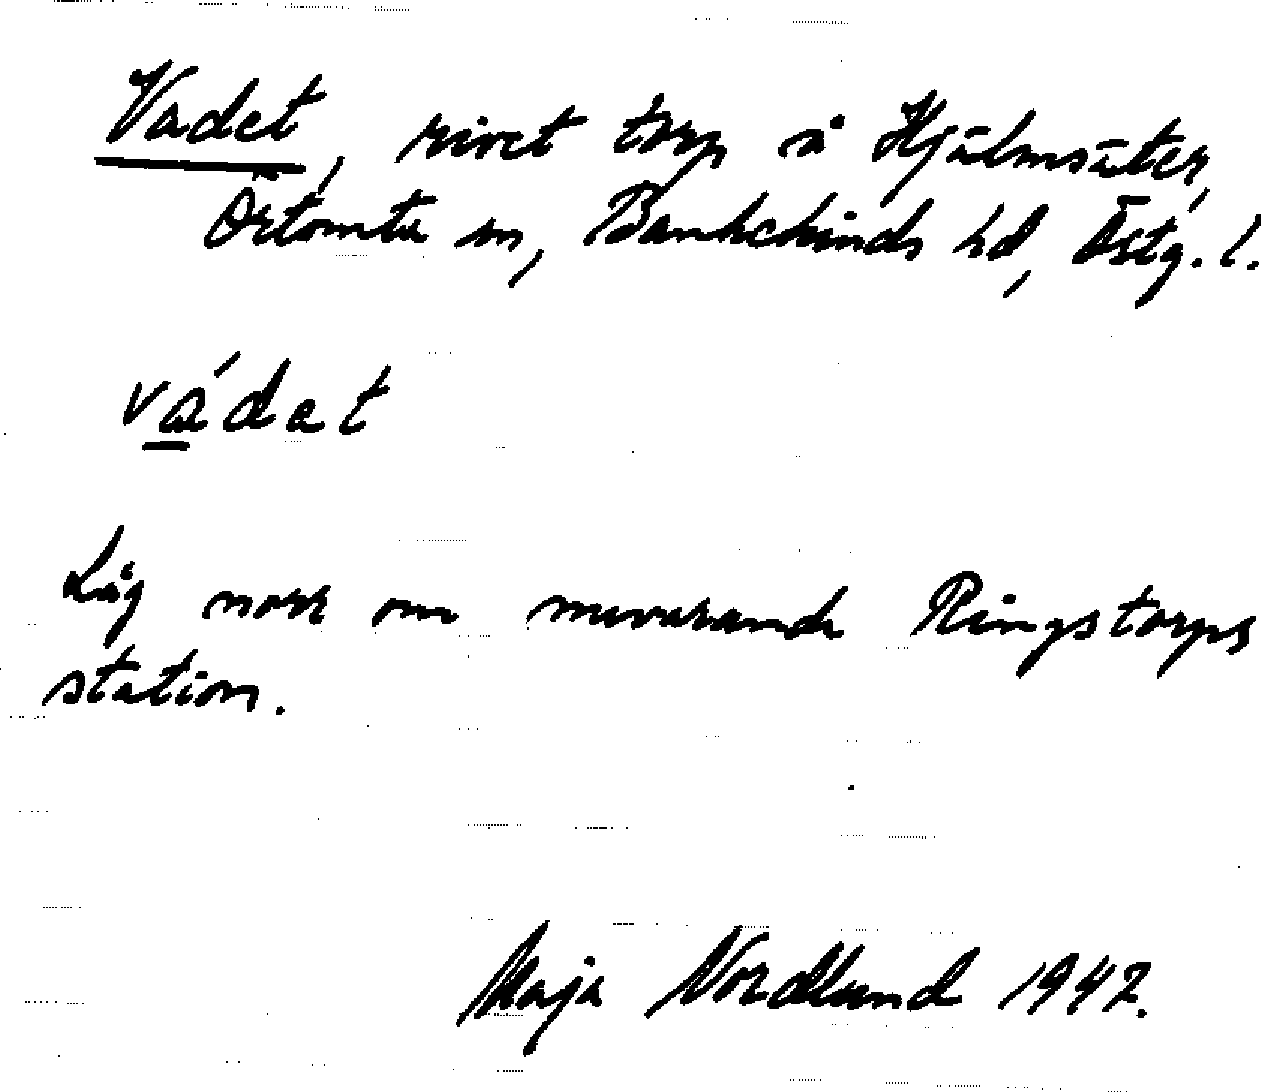 Vadet, rivet torp å Hjälmsäter,
Örtomta sn, Bankekinds hd, Östg. l.
va´det
Låg norr om nuvarande Ringstorps
station.
Maja Nordlund 1942.